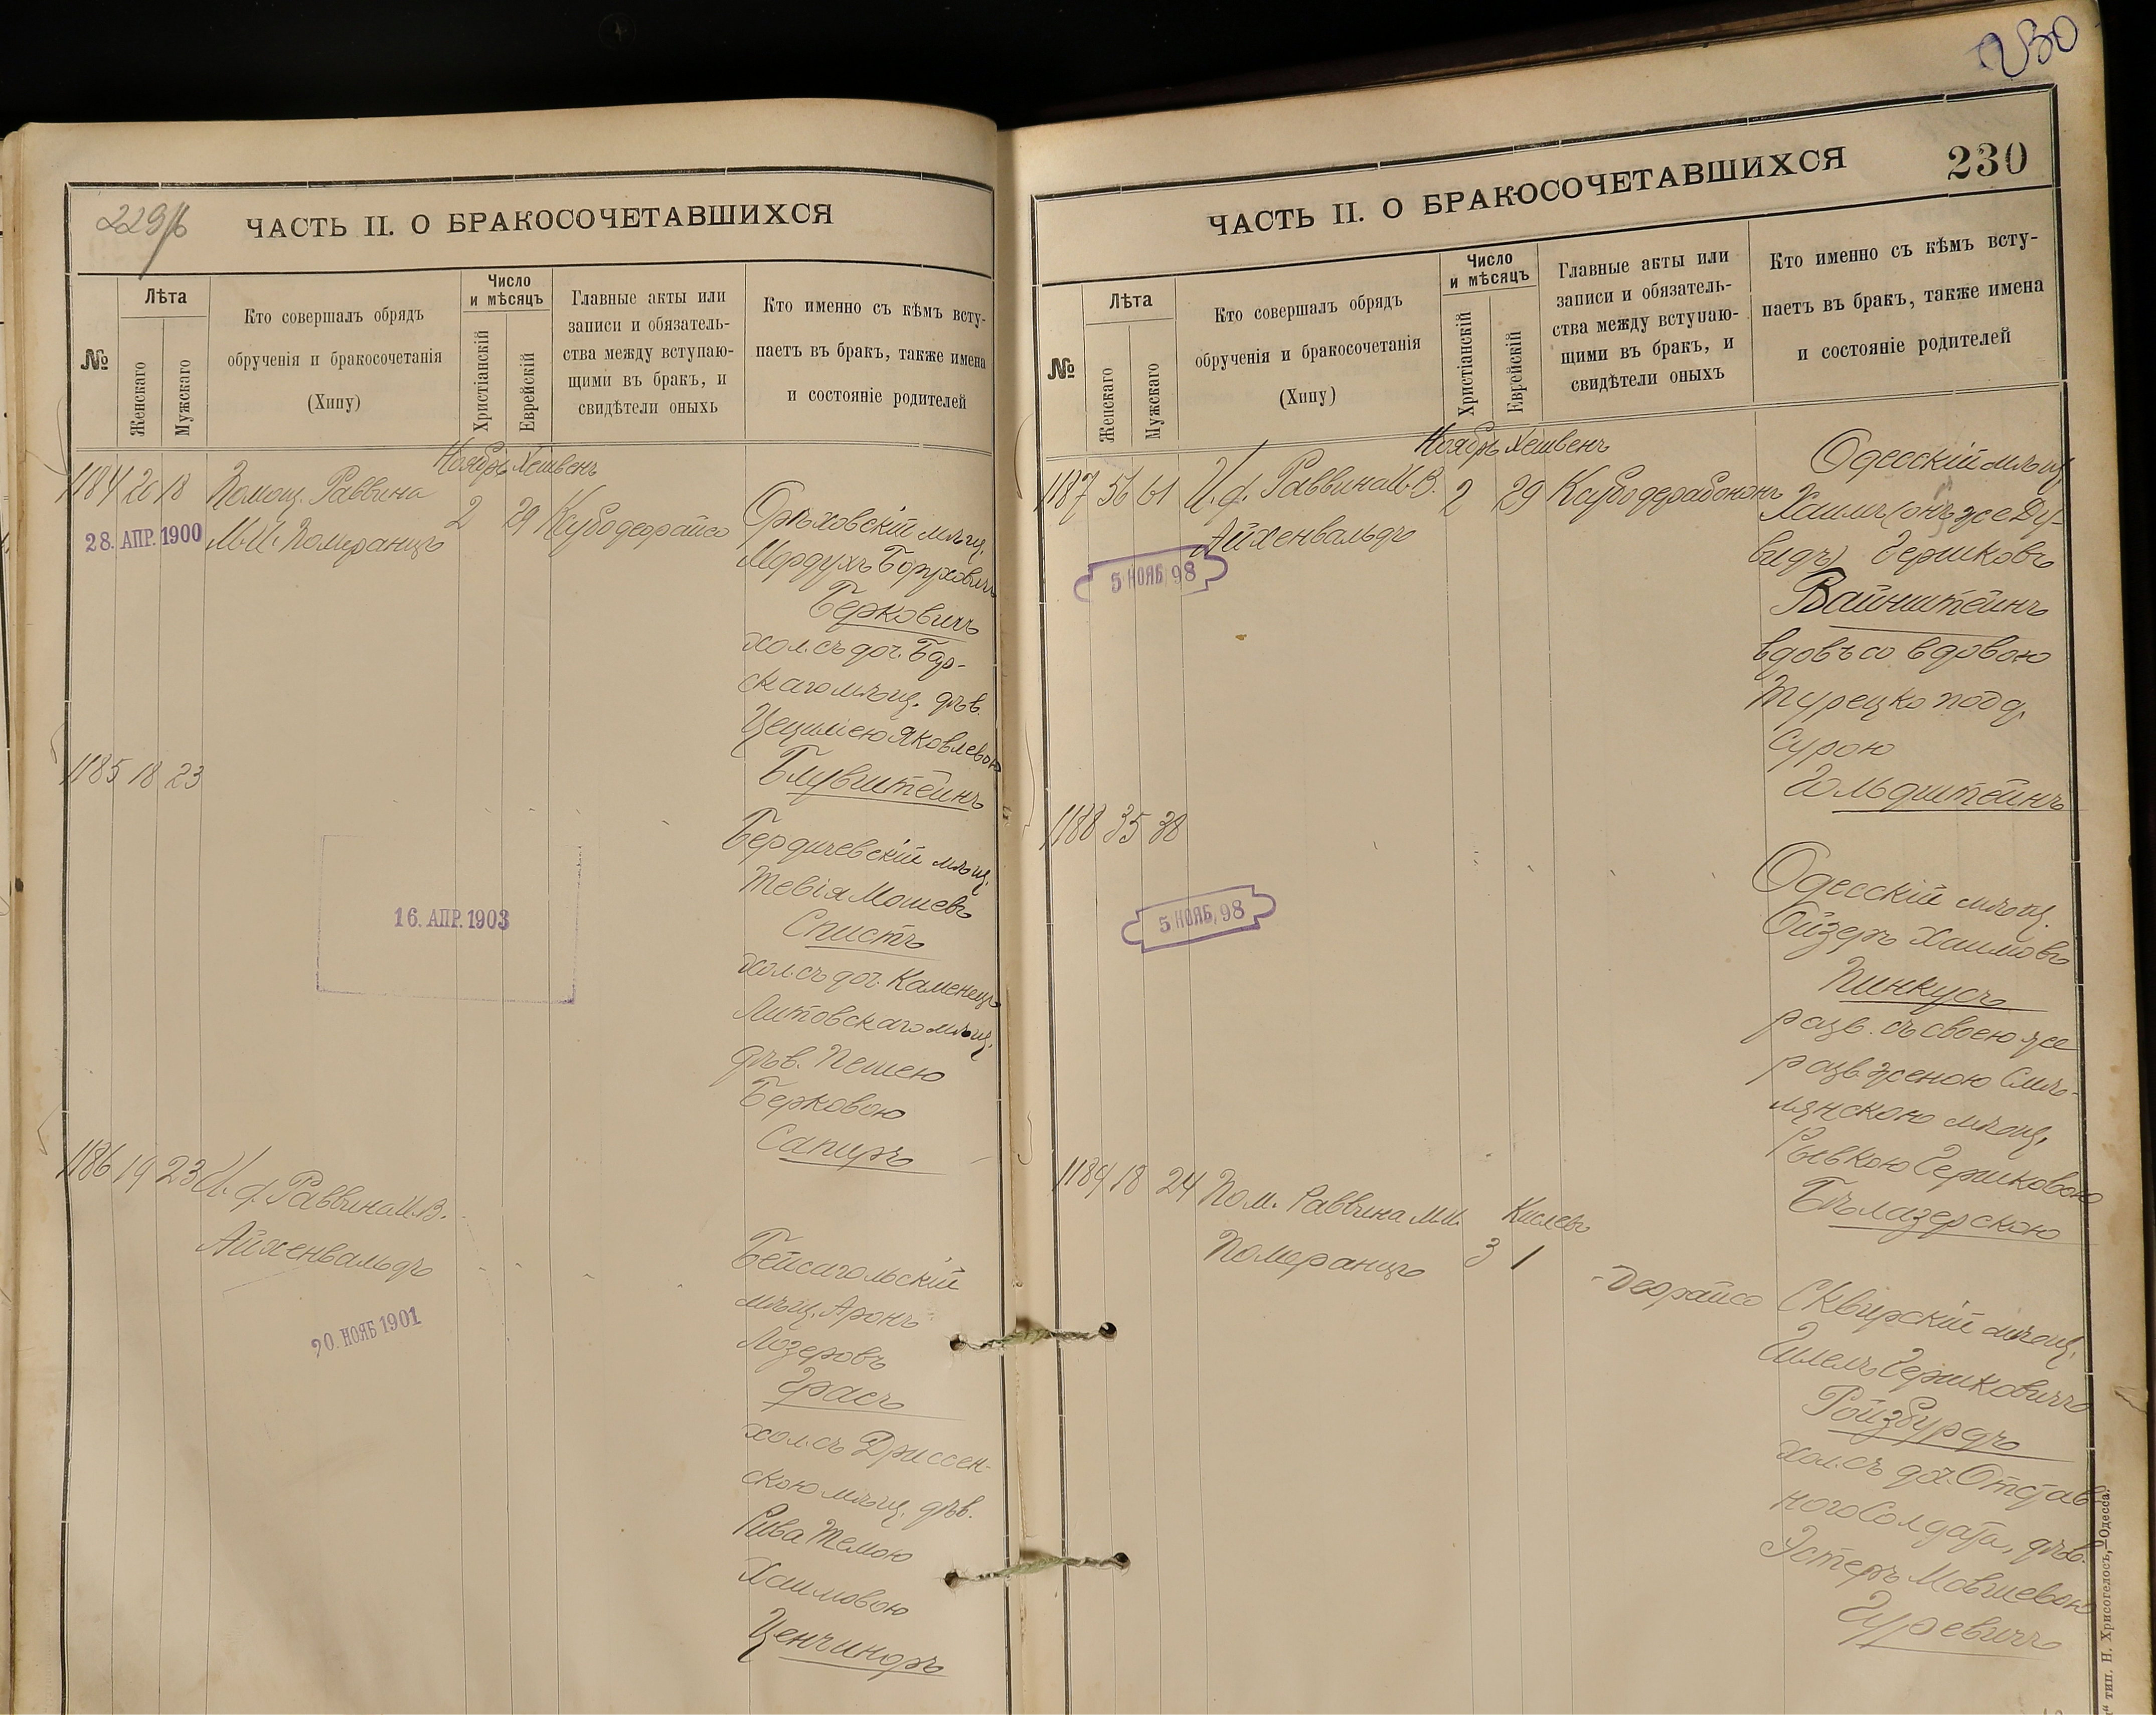 229/б
ЧАСТЬ II. О БРАКОСОЧЕТАВШИХСЯ
№
Лѣта
Женскаго
Мужскаго
Кто совершалъ обрядъ
обрученія и бракосочетанія
(Хипу)
Число
и мѣсяцъ
Христіанскій
Еврейскій
Главные акты или
записи и обязатель-
ства между вступаю-
щими въ бракъ, и
свидѣтели оныхъ
Кто именно съ кѣмъ всту-
паетъ въ бракъ, также имена
и состояніе родителей
Ноябрь Хешвенъ
1184 20 18 Помощ. Раввина
28. АПР. 1900
М. И. Померанцъ
2 29 Кубодеорайсо
Орѣховскій мѣщ.
Мордухъ Боруховичъ
Берковичъ
хол. съ доч. Бар-
скаго мѣщ. дѣв.
Цецилею Яковлевою
Блувштейнъ
1185 18 23
16. АПР. 1903
Бердичевскій мѣщ.
Тевія Мошевъ
Спистъ
хол. съ доч. Каменецъ
Литовскаго мѣщ.
дѣв. Пешею
Берковою
Сапиръ
1186 19 23 И. д. Раввина И. В.
Айхенвальдъ
20. НОЯБ 1901
Бейсагольскій
мѣщ. Аронъ
Лозеровъ
Грасъ
хол. съ Дриссен-
скою мѣщ. дѣв.
Рива Темою
Хаимовою
Ценчиноръ
230
230
ЧАСТЬ II. О БРАКОСОЧЕТАВШИХСЯ
№
Лѣта
Женскаго
Мужскаго
Кто совершалъ обрядъ
обрученія и бракосочетанія
(Хипу)
Число
и мѣсяцъ
Христіанскій
Еврейскій
Главные акты или
записи и обязатель-
ства между вступаю-
щими въ бракъ, и
свидѣтели оныхъ
Кто именно съ кѣмъ всту-
паетъ въ бракъ, также имена
и состояніе родителей
Ноябрь Хешвенъ
1187 56 61 И. д. Раввина И. В.
Айхенвальдъ
2 29 Кубодерабононъ
5 НОЯБ 98
Одесскій мѣщ.
Хаимъ (онъ же Ду-
видъ) Гершковъ
Вайнштейнъ
вдовъ со вдовою
Турецко подд.
Сурою
Гольдштейнъ
1188 35 38
5 НОЯБ 98
Одесскій мѣщ.
Ойзеръ Хаимовъ
Пинкусъ
разв. съ своею же
разв. женою Смѣ-
лянскою мѣщ.
Рывкою Гершковою
Бѣлазерскою
1189 18 24 Пом. Раввина М. И.
Померанцъ
Кислевъ
3 1
- Деорайсо
Сквирскій мѣщ.
Шлемъ Гершковичъ
Ройзбурдъ
хол. съ доч. Отстав-
ного Солдата, дѣв.
Эстеръ Мовшевою
Гуревичъ
тип. Н. Хрисогелосъ, Одесса.